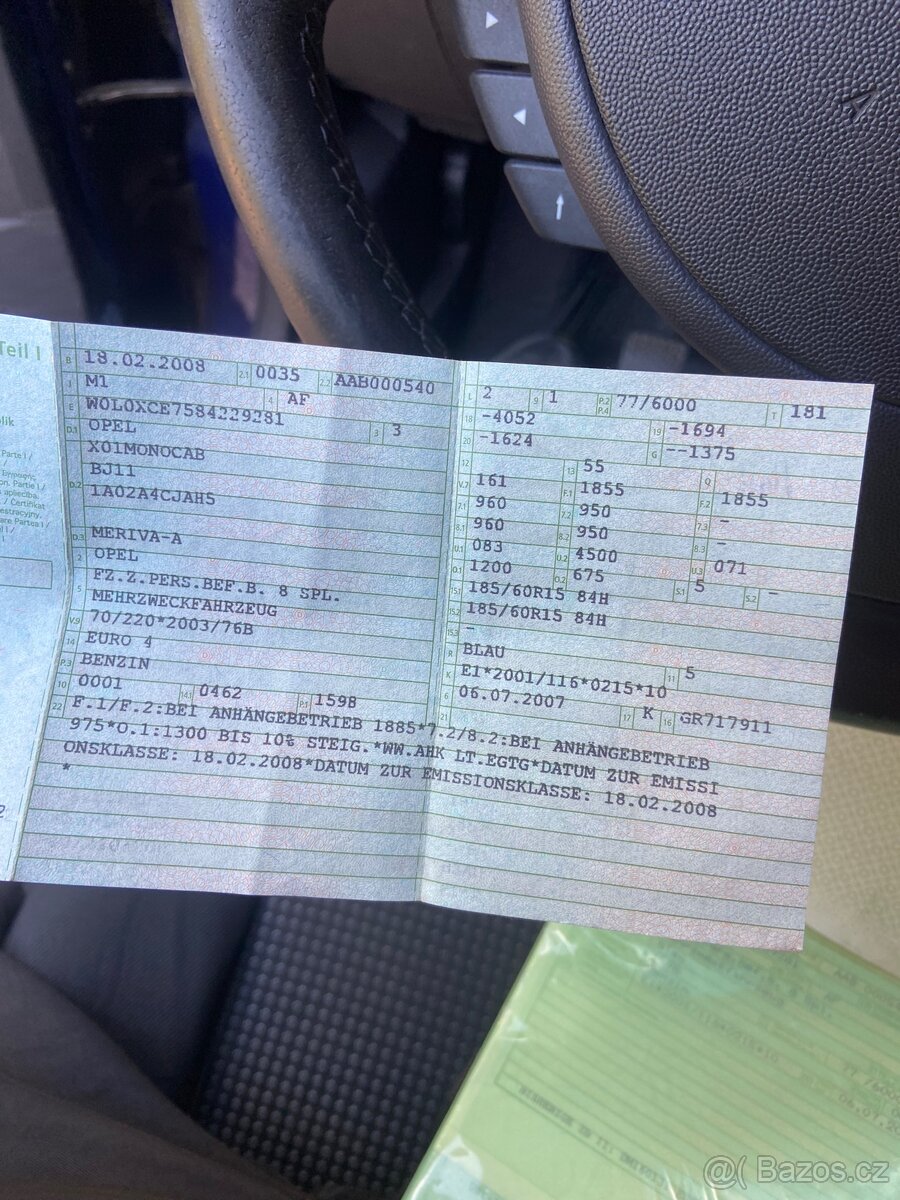 Teil I
B 18.02.2008 2.1 0035 2.2 AAB000540
J M1 4 AF
E W0L0XCE7584229281 3 3
D.1 OPEL
X01MONOCAB
BJ11
D.2 1A02A4CJAH5
D.3 MERIVA-A
2 OPEL
5 FZ.Z.PERS.BEF.B. 8 SPL.
MEHRZWECKFAHRZEUG
V.9 70/220*2003/76B
14 EURO 4
P.3 BENZIN
10 0001 14.1 0462 P.1 1598
L 2 9 1 P.2 P.4 77/6000 T 181
18 -4052 19 -1694
20 -1624 G --1375
12 13 55 Q
V.7 161 F.1 1855 F.2 1855
7.1 960 7.2 950 7.3 -
8.1 960 8.2 950 8.3 -
U.1 083 U.2 4500 U.3 071
O.1 1200 O.2 675 S.1 5 S.2 -
15.1 185/60R15 84H
15.2 185/60R15 84H
15.3 -
R BLAU 11 5
K E1*2001/116*0215*10
6 06.07.2007 17 K 16 GR717911
21
22 F.1/F.2:BEI ANHÄNGEBETRIEB 1885*7.2/8.2:BEI ANHÄNGEBETRIEB
975*O.1:1300 BIS 10% STEIG.*WW.AHK LT.EGTG*DATUM ZUR EMISSI
ONSKLASSE: 18.02.2008*DATUM ZUR EMISSIONSKLASSE: 18.02.2008
*
@( Bazos.cz